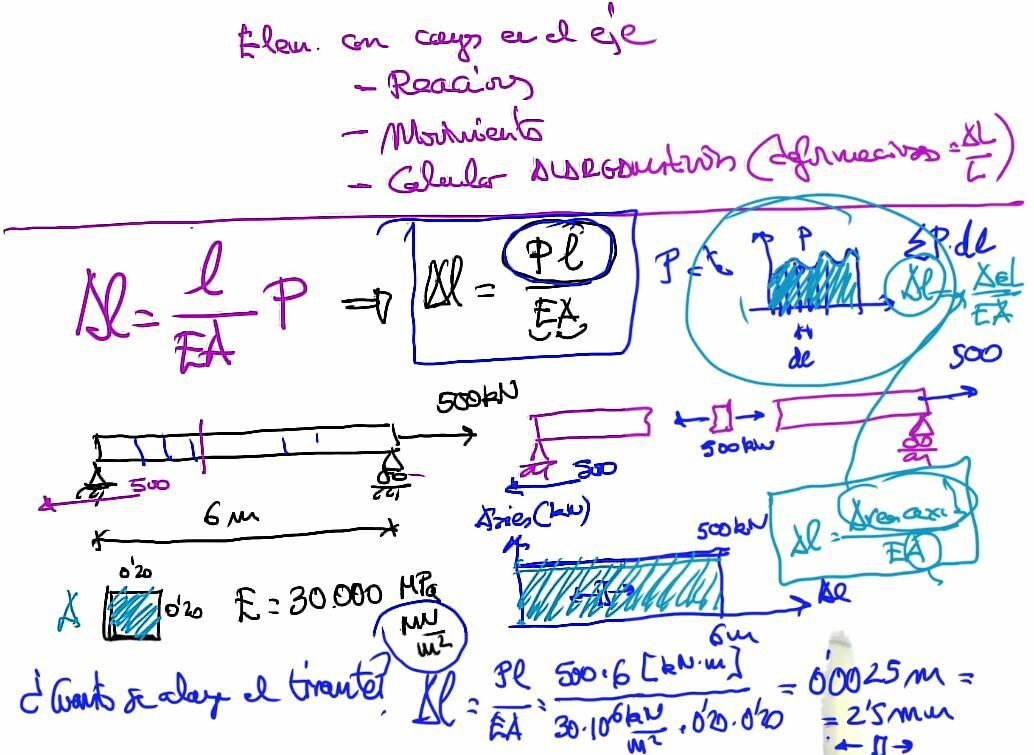 Elem. con cargas en el eje
- Reacciones
- Movimiento
- Calcular ALARGAMIENTOS (deformaciones = ΔL/L)
Δl = l/EA P ⇒ Δl = Pl/EA
P
P
dl
ΣP.dl
Δl = /EA
500
500kN
500
6m
500
500kN
Axiles (kN)
500kN
Δl = Area axil/EA
6m
A
0'20
0'20
E = 30.000 MPa
MN/m²
¿Cuanto se alarga el tirante?
Δl = Pl/EA = 500·6 [kN·m]/30·10⁶ kN/m² · 0'20·0'20 = 0'0025 m =
= 2'5 mm